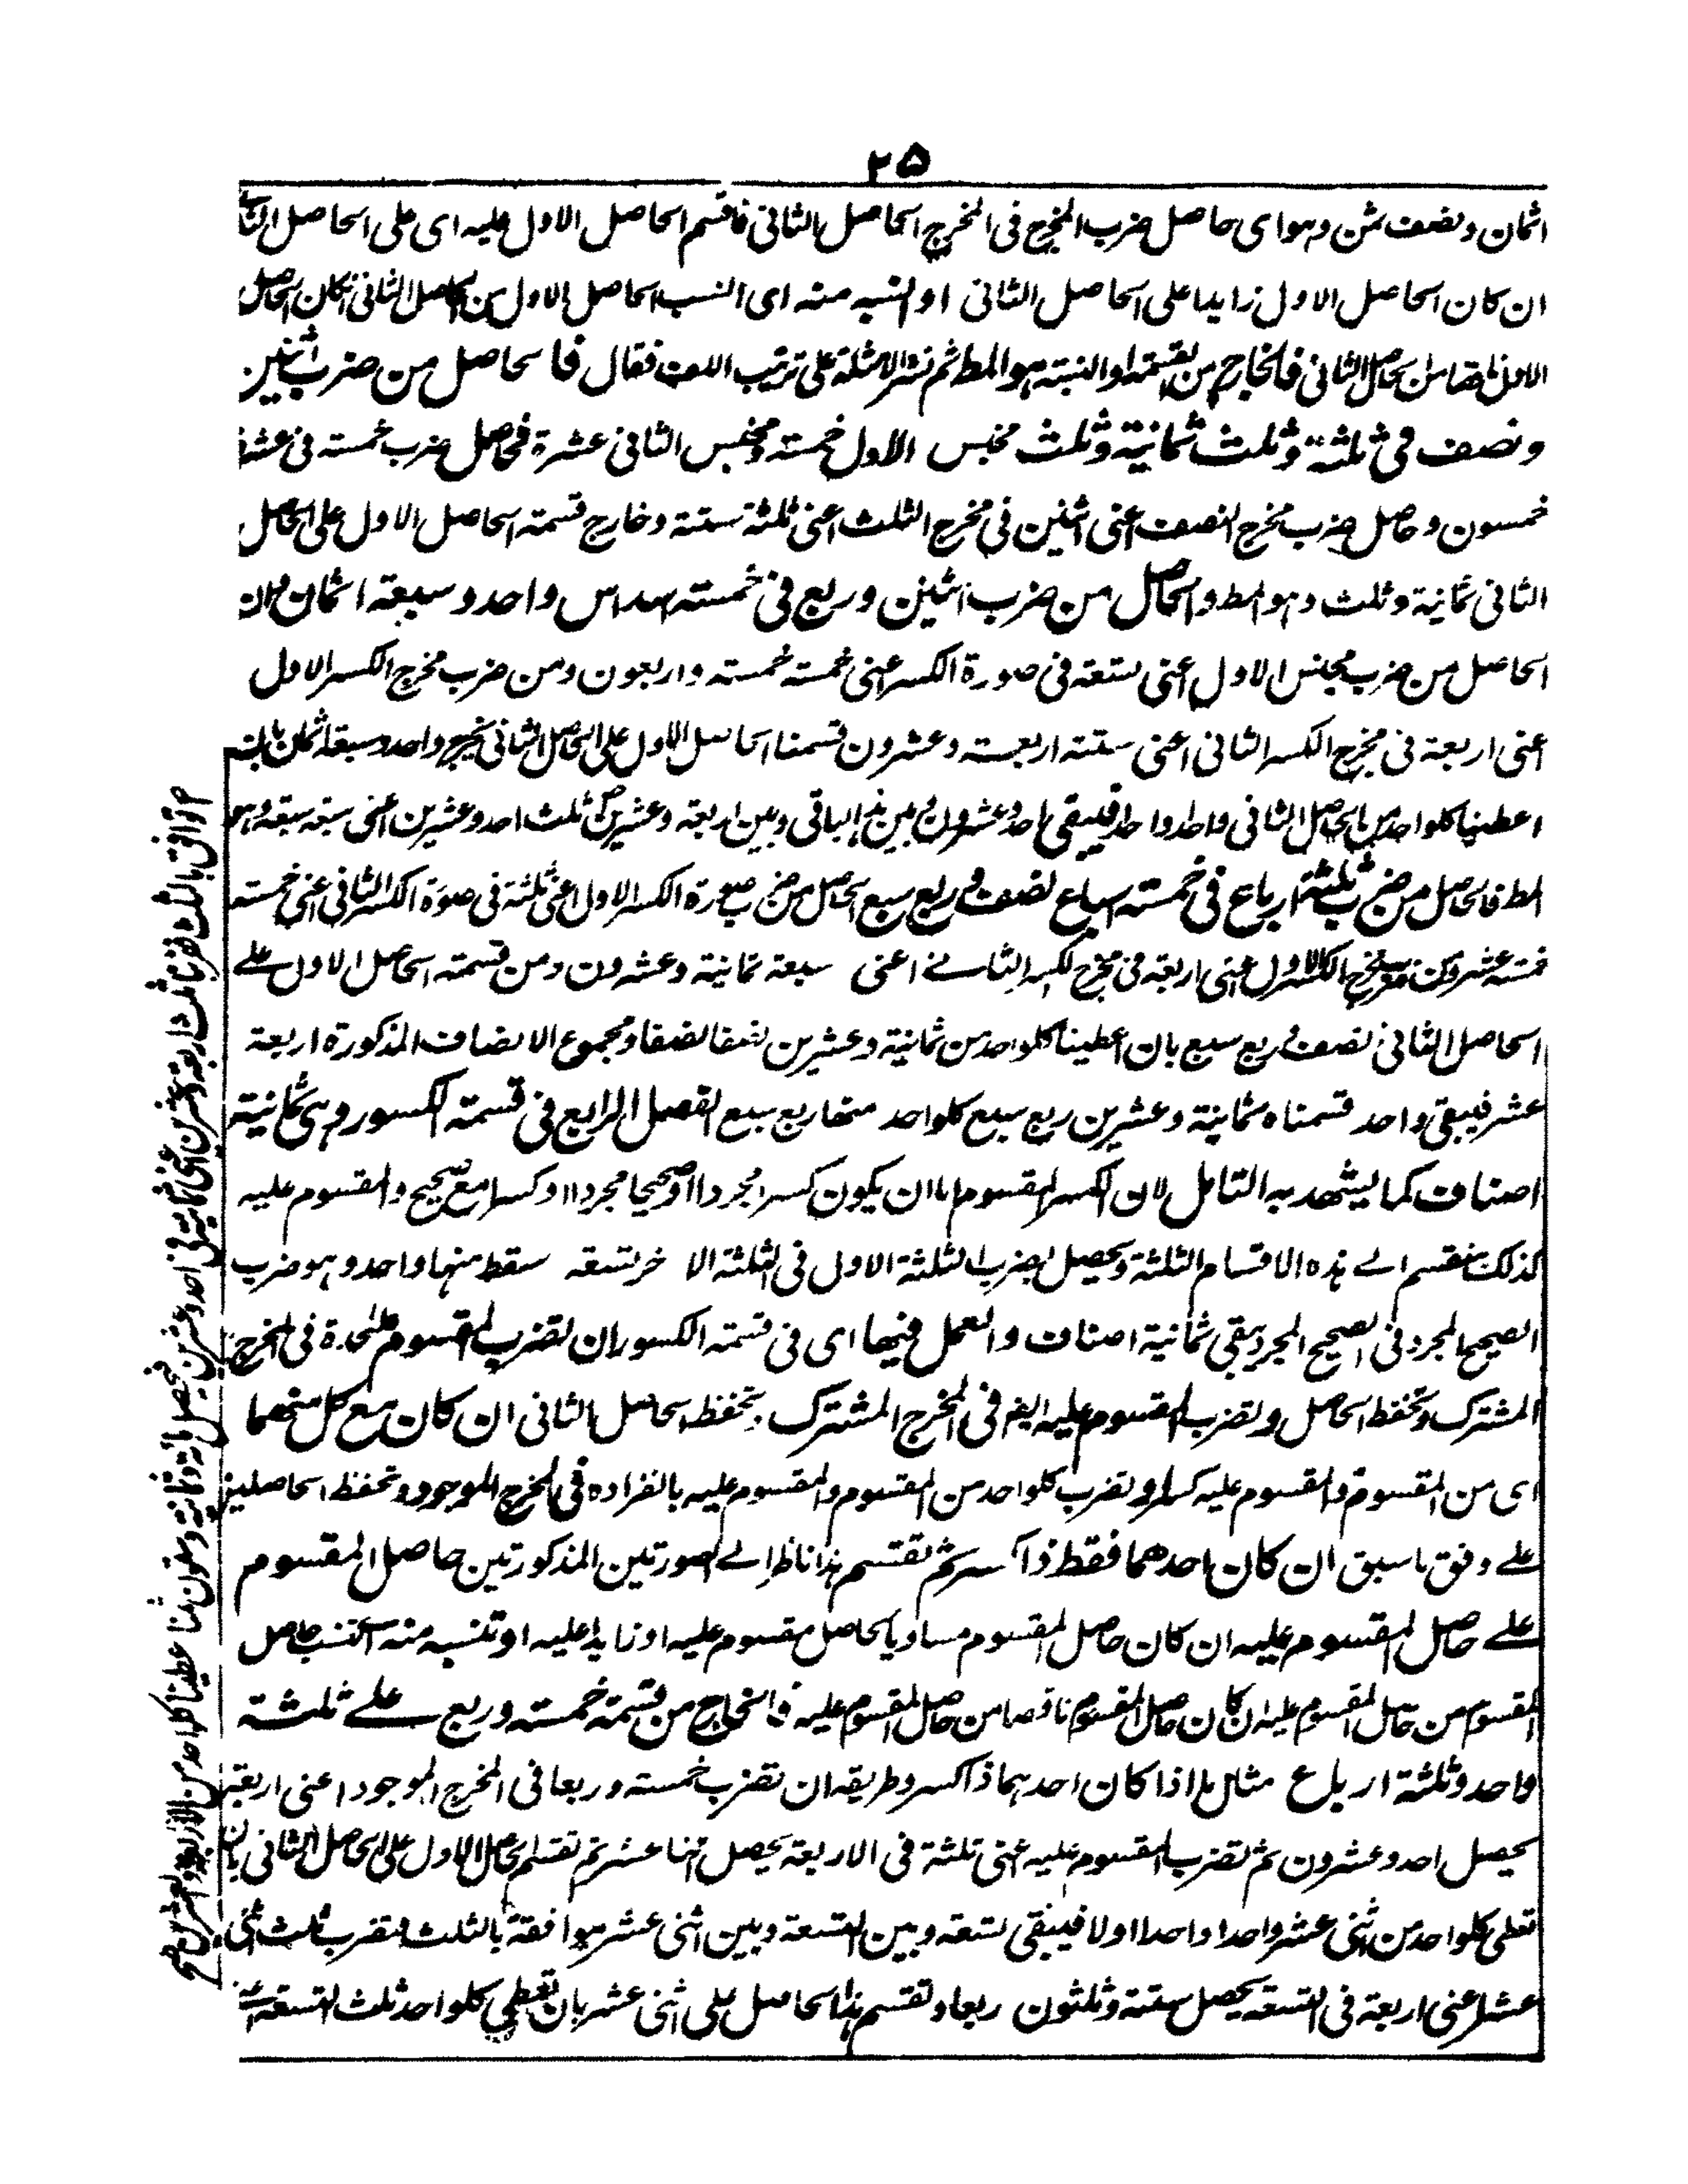 ۲۵
اثمان ونصف ثمن وهو اى حاصل ضرب المخرج فى المخرج الحاصل الثانى فاقسم الحاصل الاول عليه اى على الحاصل الثانے
ان كان الحاصل الاول زايدا على الحاصل الثانى او انسبه منه اى النسب الحاصل الاول من الحاصل الثانى ان كان الحاصل
الاول ناقصا من الحاصل الثانى فالخارج من القسمة او النسبة هو المط ثم نشر الامثلة على ترتيب اللف فقال فالحاصل من ضرب اثنين
ونصف فى ثلثة وثلث ثمانية وثلث مجنس الاول خمسة ومجنس الثانى عشرة فحاصل ضرب خمسة فى عشرة
خمسون وحاصل ضرب مخرج النصف اعنى اثنين فى مخرج الثلث اعنى ثلثة ستة وخارج قسمة الحاصل الاول على الحاصل
الثانى ثمانية وثلث وهو المط والحاصل من ضرب اثنين وربع فى خمسة اسداس واحد وسبعة اثمان فان
الحاصل من ضرب مجنس الاول اعنى تسعة فى صورة الكسر اعنى خمسة خمسة واربعون ومن ضرب مخرج الكسر الاول
اعنى اربعة فى مخرج الكسر الثانى اعنى ستة اربعة وعشرون قسمنا الحاصل الاول على الحاصل الثانى يخرج واحد وسبعة اثمان بان
اعطينا كلواحد من الحاصل الثانى واحدا واحدا فيبقى احد وعشرون بين هذا الباقى وبين اربعة وعشرين ثلث احد وعشرين اعنى سبعة سبعة وهو
المط فالحاصل من ضرب ثلثة ارباع فى خمسة اسباع نصف وربع سبع الحاصل من ضرب صورة الكسر الاول اعنى ثلثة فى صورة الكسر الثانى اعنى خمسة
خمسة عشر ومن ضرب مخرج الكسر الاول اعنى اربعة فى مخرج الكسر الثانے اعنى سبعة ثمانية وعشرون ومن قسمة الحاصل الاول علے
الحاصل الثانى نصف وربع سبع بان اعطينا كلواحد من ثمانية وعشرين نصفا نصفا ومجموع الانصاف المذكورة اربعة
عشر فيبقى واحد قسمناه ثمانية وعشرين ربع سبع كلواحد منها ربع سبع الفصل الرابع فى قسمة الكسور وهى ثمانية
اصناف كما يشهد به التامل لان الكسر المقسوم اما ان يكون كسرا مجردا او صحيحا مجردا او كسرا مع صحيح والمقسوم عليه
كذلك منقسم الے هذه الاقسام الثلثة ويحصل بضرب الثلثة الاول فى الثلثة الاخر تسعة سقط منها واحد وهو ضرب
الصحيح المجرد فى الصحيح المجرد يبقى ثمانية اصناف والعمل فيها اى فى قسمة الكسور ان تضرب المقسوم علىحدة فى المخرج
المشترك وتحفظ الحاصل وتضرب المقسوم عليه ايضا فى المخرج المشترك وتحفظ الحاصل الثانى ان كان مع كل منهما
اى من المقسوم والمقسوم عليه كسر او تضرب كلواحد من المقسوم والمقسوم عليه بانفراده فى المخرج الموجود وتحفظ الحاصلين
علے وفق ما سبق ان كان احدهما فقط ذا كسر ثم تقسم هذا ناظر الے الصورتين المذكورتين حاصل المقسوم
علے حاصل المقسوم عليه ان كان حاصل المقسوم مساويا لحاصل مقسوم عليه او زايدا عليه او تنسبه منه اى تنسب حاصل
المقسوم من حاصل المقسوم عليه ان كان حاصل المقسوم ناقصا من حاصل المقسوم عليه فالخارج من قسمة خمسة وربع علے ثلثة
واحد وثلثة ارباع مثال ما اذا كان احدهما ذا كسر وطريقه ان تضرب خمسة وربعا فى المخرج الموجود اعنى اربعة
يحصل احد وعشرون ثم تضرب المقسوم عليه اعنى ثلثة فى الاربعة يحصل اثنا عشر ثم تقسم الحاصل الاول على الحاصل الثانى بان
تعطى كلواحد من اثنى عشر واحدا واحدا اولا فيبقى تسعة وبين التسعة وبين اثنى عشر موافقة بالثلث فتضرب ثلث اثنى
عشر اعنى اربعة فى التسعة يحصل ستة وثلثون ربعا وتقسم هذا الحاصل على اثنى عشر بان تعطى كلواحد ثلث التسعة
توافق بالثلث فضربنا ثلث اربعة وعشرين اعنى ثمانية فى احد وعشرين فيحصل مائة وثمانية وستون ثمنا اعطينا كلواحد من الاربعة والعشرين